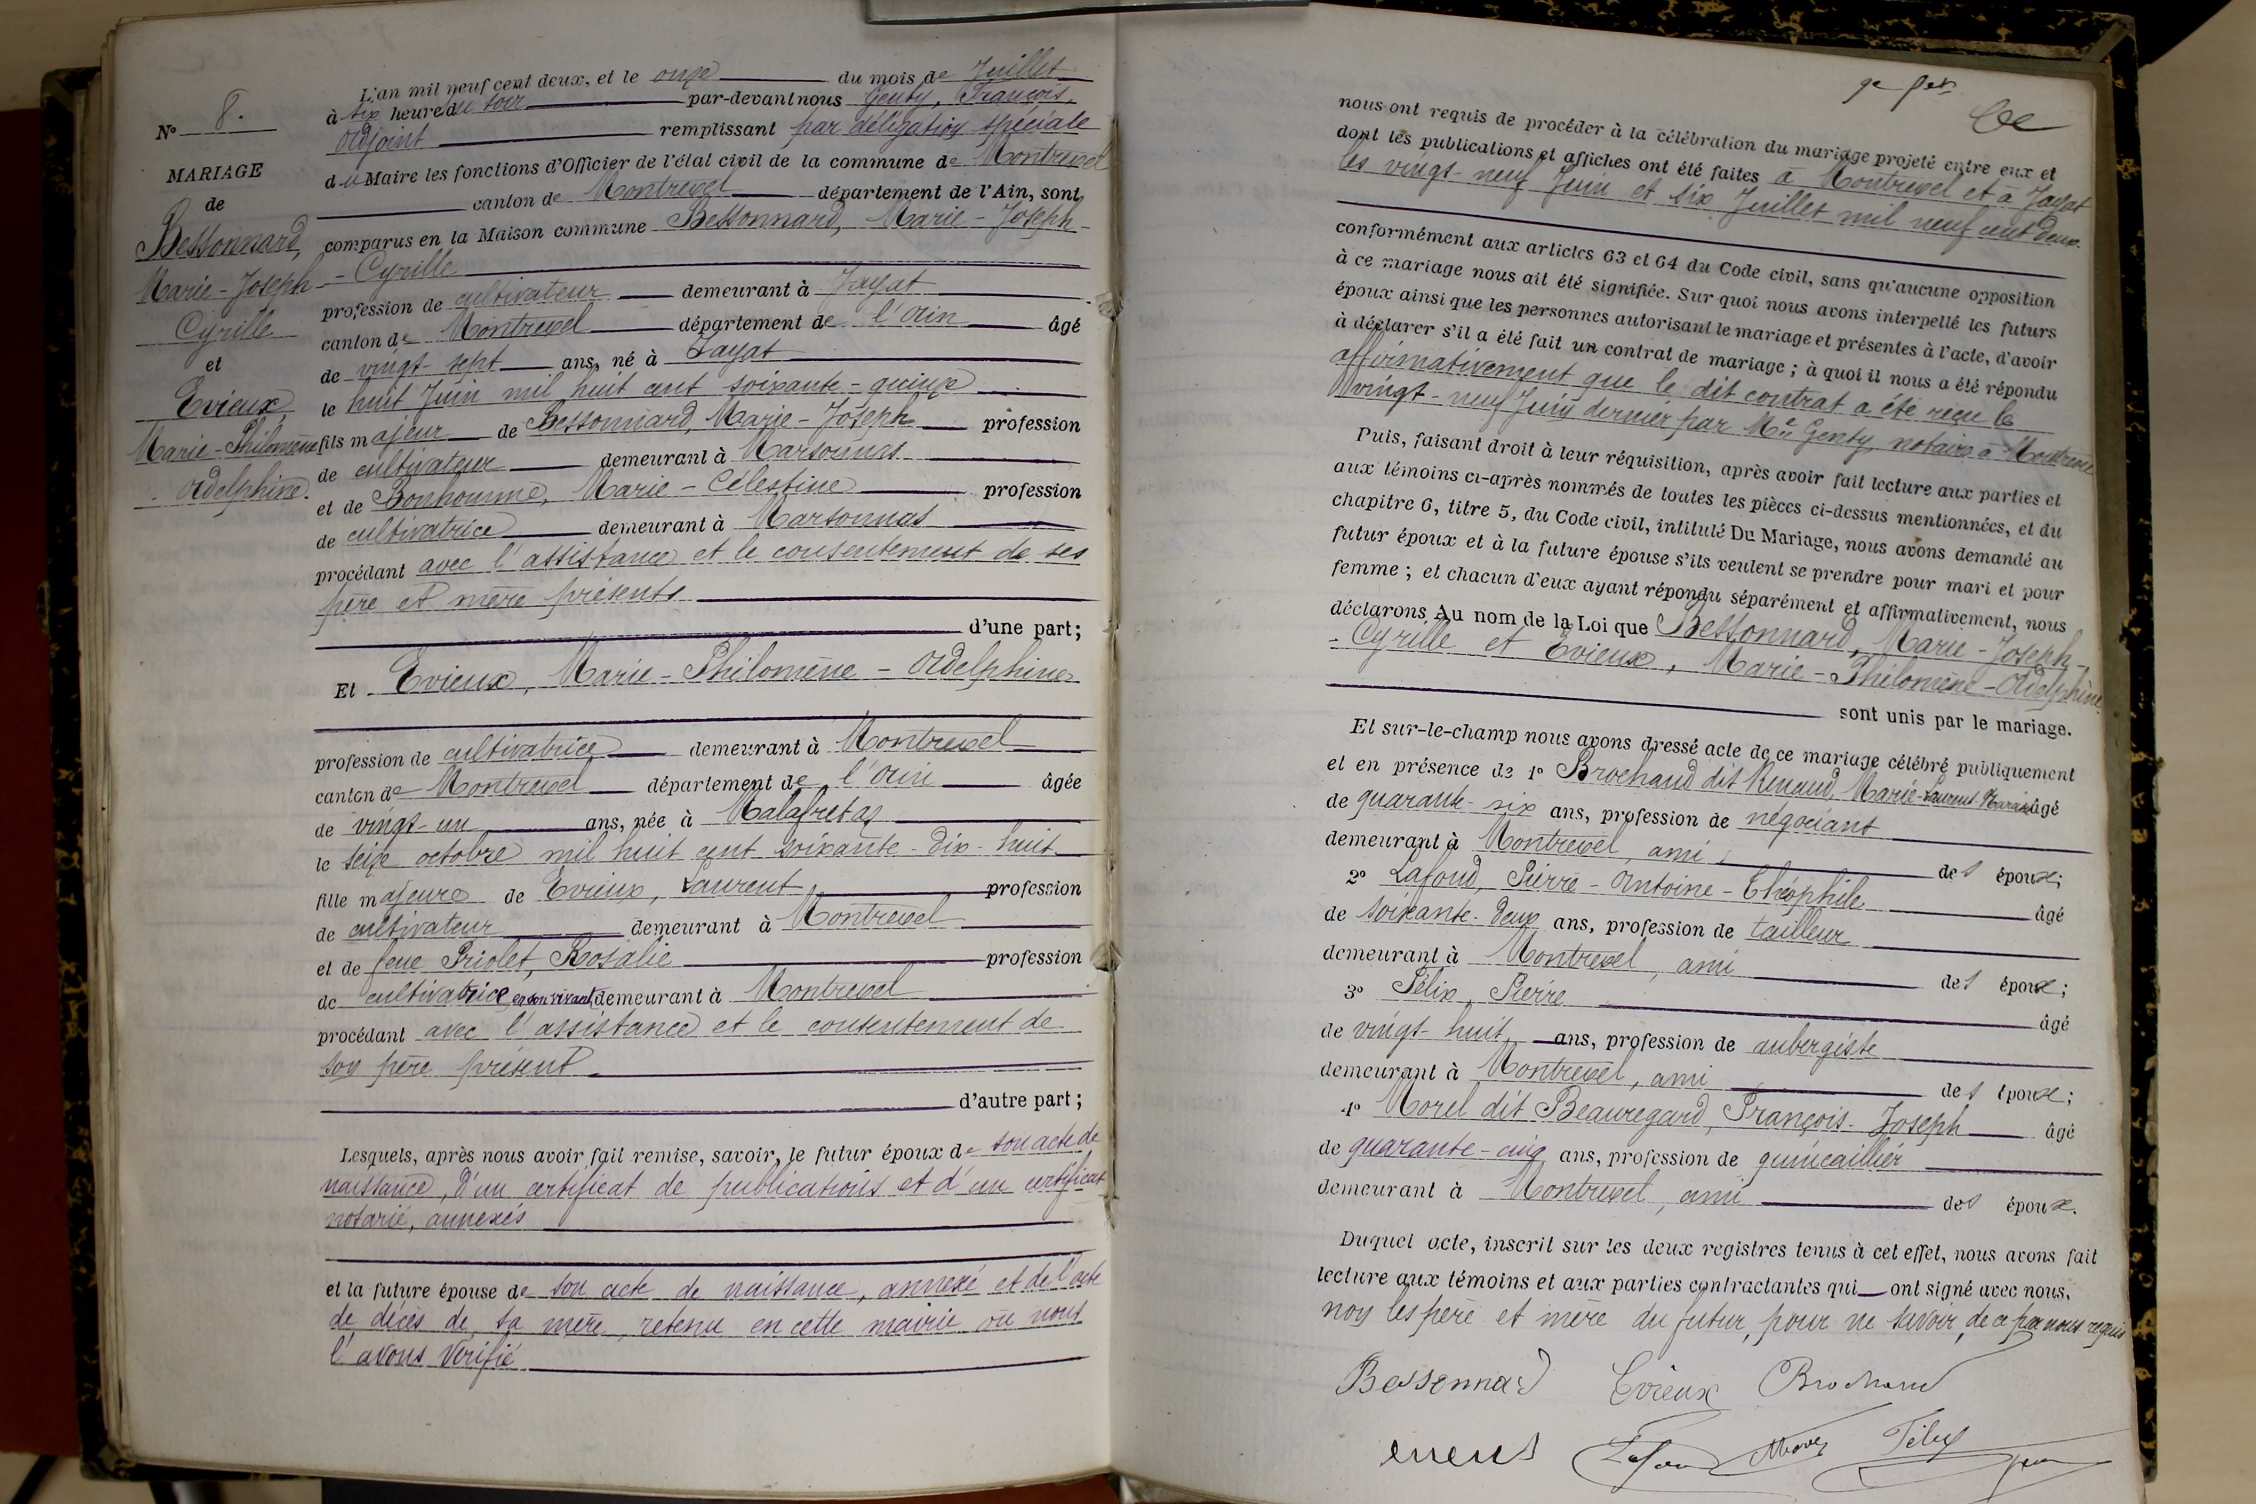 L'an mil neuf cent deux, et le onze du mois de Juillet
à six heure du soir par-devant nous Genty, François,
Adjoint remplissant par délégation spéciale
du Maire les fonctions d'Officier de l'état civil de la commune de Montrevel
canton de Montrevel département de l'Ain, sont
comparus en la Maison commune Bessonnard, Marie-Joseph-
-Cyrille
profession de cultivateur demeurant à Jayat
canton de Montrevel département de l'Ain âgé
de vingt-sept ans, né à Jayat
le huit Juin mil huit cent soixante-quinze
fils majeur de Bessonnard, Marie-Joseph profession
de cultivateur demeurant à Marsonnas
et de Bonhomme, Marie-Célestine profession
de cultivatrice demeurant à Marsonnas
procédant avec l'assistance et le consentement de ses
père et mère présents
d'une part;
Et Evieux, Marie-Philomène-Adelphine
profession de cultivatrice demeurant à Montrevel
canton de Montrevel département de l'Ain âgée
de vingt-un ans, née à Malafretaz
le seize octobre mil huit cent soixante-dix-huit
fille majeure de Evieux, Laurent profession
de cultivateur demeurant à Montrevel
et de feue Priolet, Rosalie profession
de cultivatrice en son vivant demeurant à Montrevel
procédant avec l'assistance et le consentement de
son père présent
d'autre part;
Lesquels, après nous avoir fait remise, savoir, le futur époux de son acte de
naissance, d'un certificat de publications et d'un certificat
notarié, annexés
et la future épouse de son acte de naissance, annexé et de l'acte
de décès de sa mère, retenu en cette mairie où nous
l'avons vérifié
N° 8.
MARIAGE
de
Bessonnard,
Marie-Joseph-
Cyrille
et
Evieux,
Marie-Philomène
Adelphine.
nous ont requis de procéder à la célébration du mariage projeté entre eux et
dont les publications et affiches ont été faites à Montrevel et à Jayat
les vingt-neuf Juin et six Juillet mil neuf cent deux
conformément aux articles 63 et 64 du Code civil, sans qu'aucune opposition
à ce mariage nous ait été signifiée. Sur quoi nous avons interpellé les futurs
époux ainsi que les personnes autorisant le mariage et présentes à l'acte, d'avoir
à déclarer s'il a été fait un contrat de mariage; à quoi il nous a été répondu
affirmativement que le dit contrat a été reçu le
vingt-neuf Juin dernier par Me Genty, notaire à Montrevel
Puis, faisant droit à leur réquisition, après avoir fait lecture aux parties et
aux témoins ci-après nommés de toutes les pièces ci-dessus mentionnées, et du
chapitre 6, titre 5, du Code civil, intitulé Du Mariage, nous avons demandé au
futur époux et à la future épouse s'ils veulent se prendre pour mari et pour
femme; et chacun d'eux ayant répondu séparément et affirmativement, nous
déclarons Au nom de la Loi que Bessonnard, Marie-Joseph-
-Cyrille et Evieux, Marie-Philomène-Adelphine
sont unis par le mariage.
Et sur-le-champ nous avons dressé acte de ce mariage célébré publiquement
et en présence de 1° Brochand dit Renaud, Marie-Laurent âgé
de quarante-six ans, profession de négociant
demeurant à Montrevel, ami des époux;
2° Lafond, Pierre-Antoine-Théophile âgé
de soixante-deux ans, profession de tailleur
demeurant à Montrevel, ami des époux;
3° Félix, Pierre âgé
de vingt-huit ans, profession de aubergiste
demeurant à Montrevel, ami des époux;
4° Morel dit Beauregard, François-Joseph âgé
de quarante-cinq ans, profession de quincaillier
demeurant à Montrevel, ami des époux.
Duquel acte, inscrit sur les deux registres tenus à cet effet, nous avons fait
lecture aux témoins et aux parties contractantes qui ont signé avec nous,
non les père et mère du futur, pour ne savoir, de ce par nous requis
Bessonnard Evieux Brochand
evieux Lafond Morel Félix